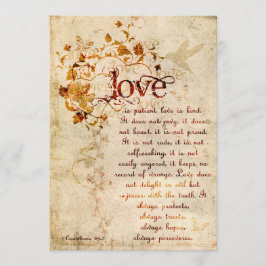 love
is patient love is kind.
It does not envy, it does
not boast, it is not proud.
It is not rude, it is not
self-seeking, it is not
easily angered, it keeps no
record of wrongs. Love does
not delight in evil but
rejoices with the truth. It
always protects,
always trusts,
always hopes,
always perseveres.